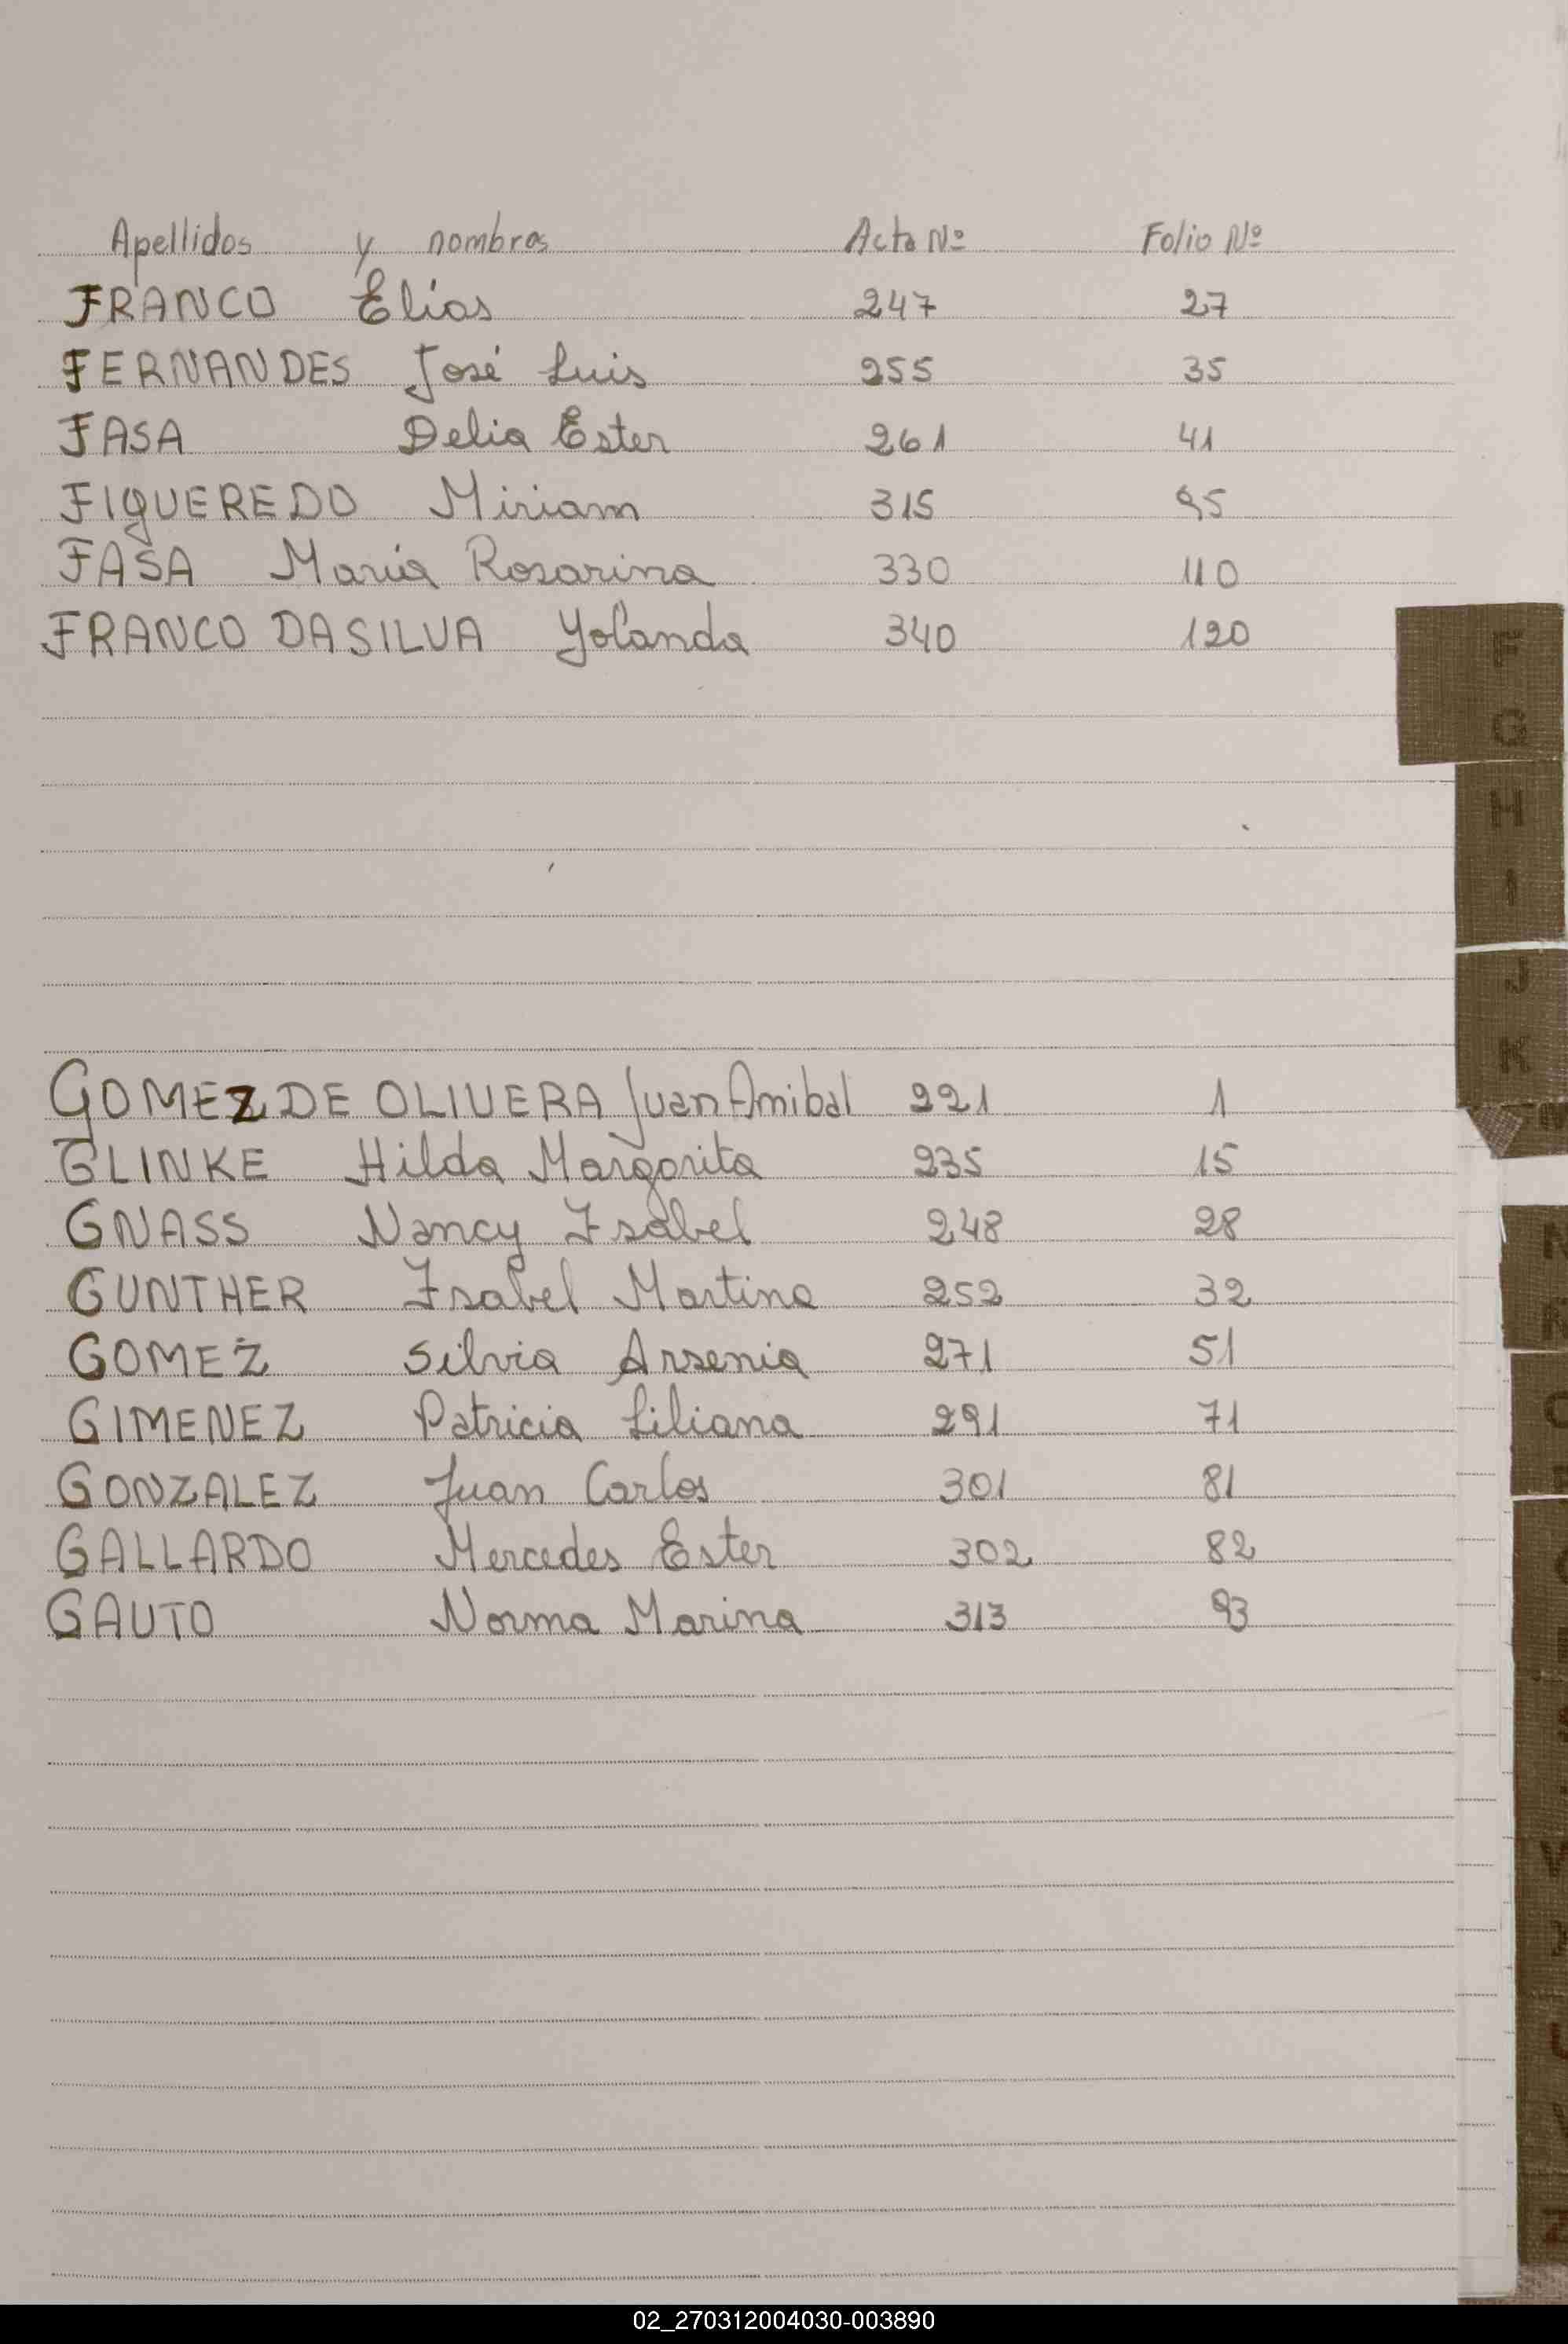 Apellidos y nombres Acta Nº Folio Nº
FRANCO Elías 247 27
FERNANDES José Luis 255 35
FASA Delia Ester 261 41
FIGUEREDO Miriam 315 95
FASA María Rosarina 330 110
FRANCO DASILVA Yolanda 340 120
F
G
H
I
J
K
GOMEZ DE OLIVERA Juan Anibal 221 1
GLINKE Hilda Margarita 235 15
GNASS Nancy Isabel 248 28
GUNTHER Isabel Martina 252 32
GOMEZ Silvia Arsenia 271 51
GIMENEZ Patricia Liliana 291 71
GONZALEZ Juan Carlos 301 81
GALLARDO Mercedes Ester 302 82
GAUTO Norma Marina 313 93
02_270312004030-003890